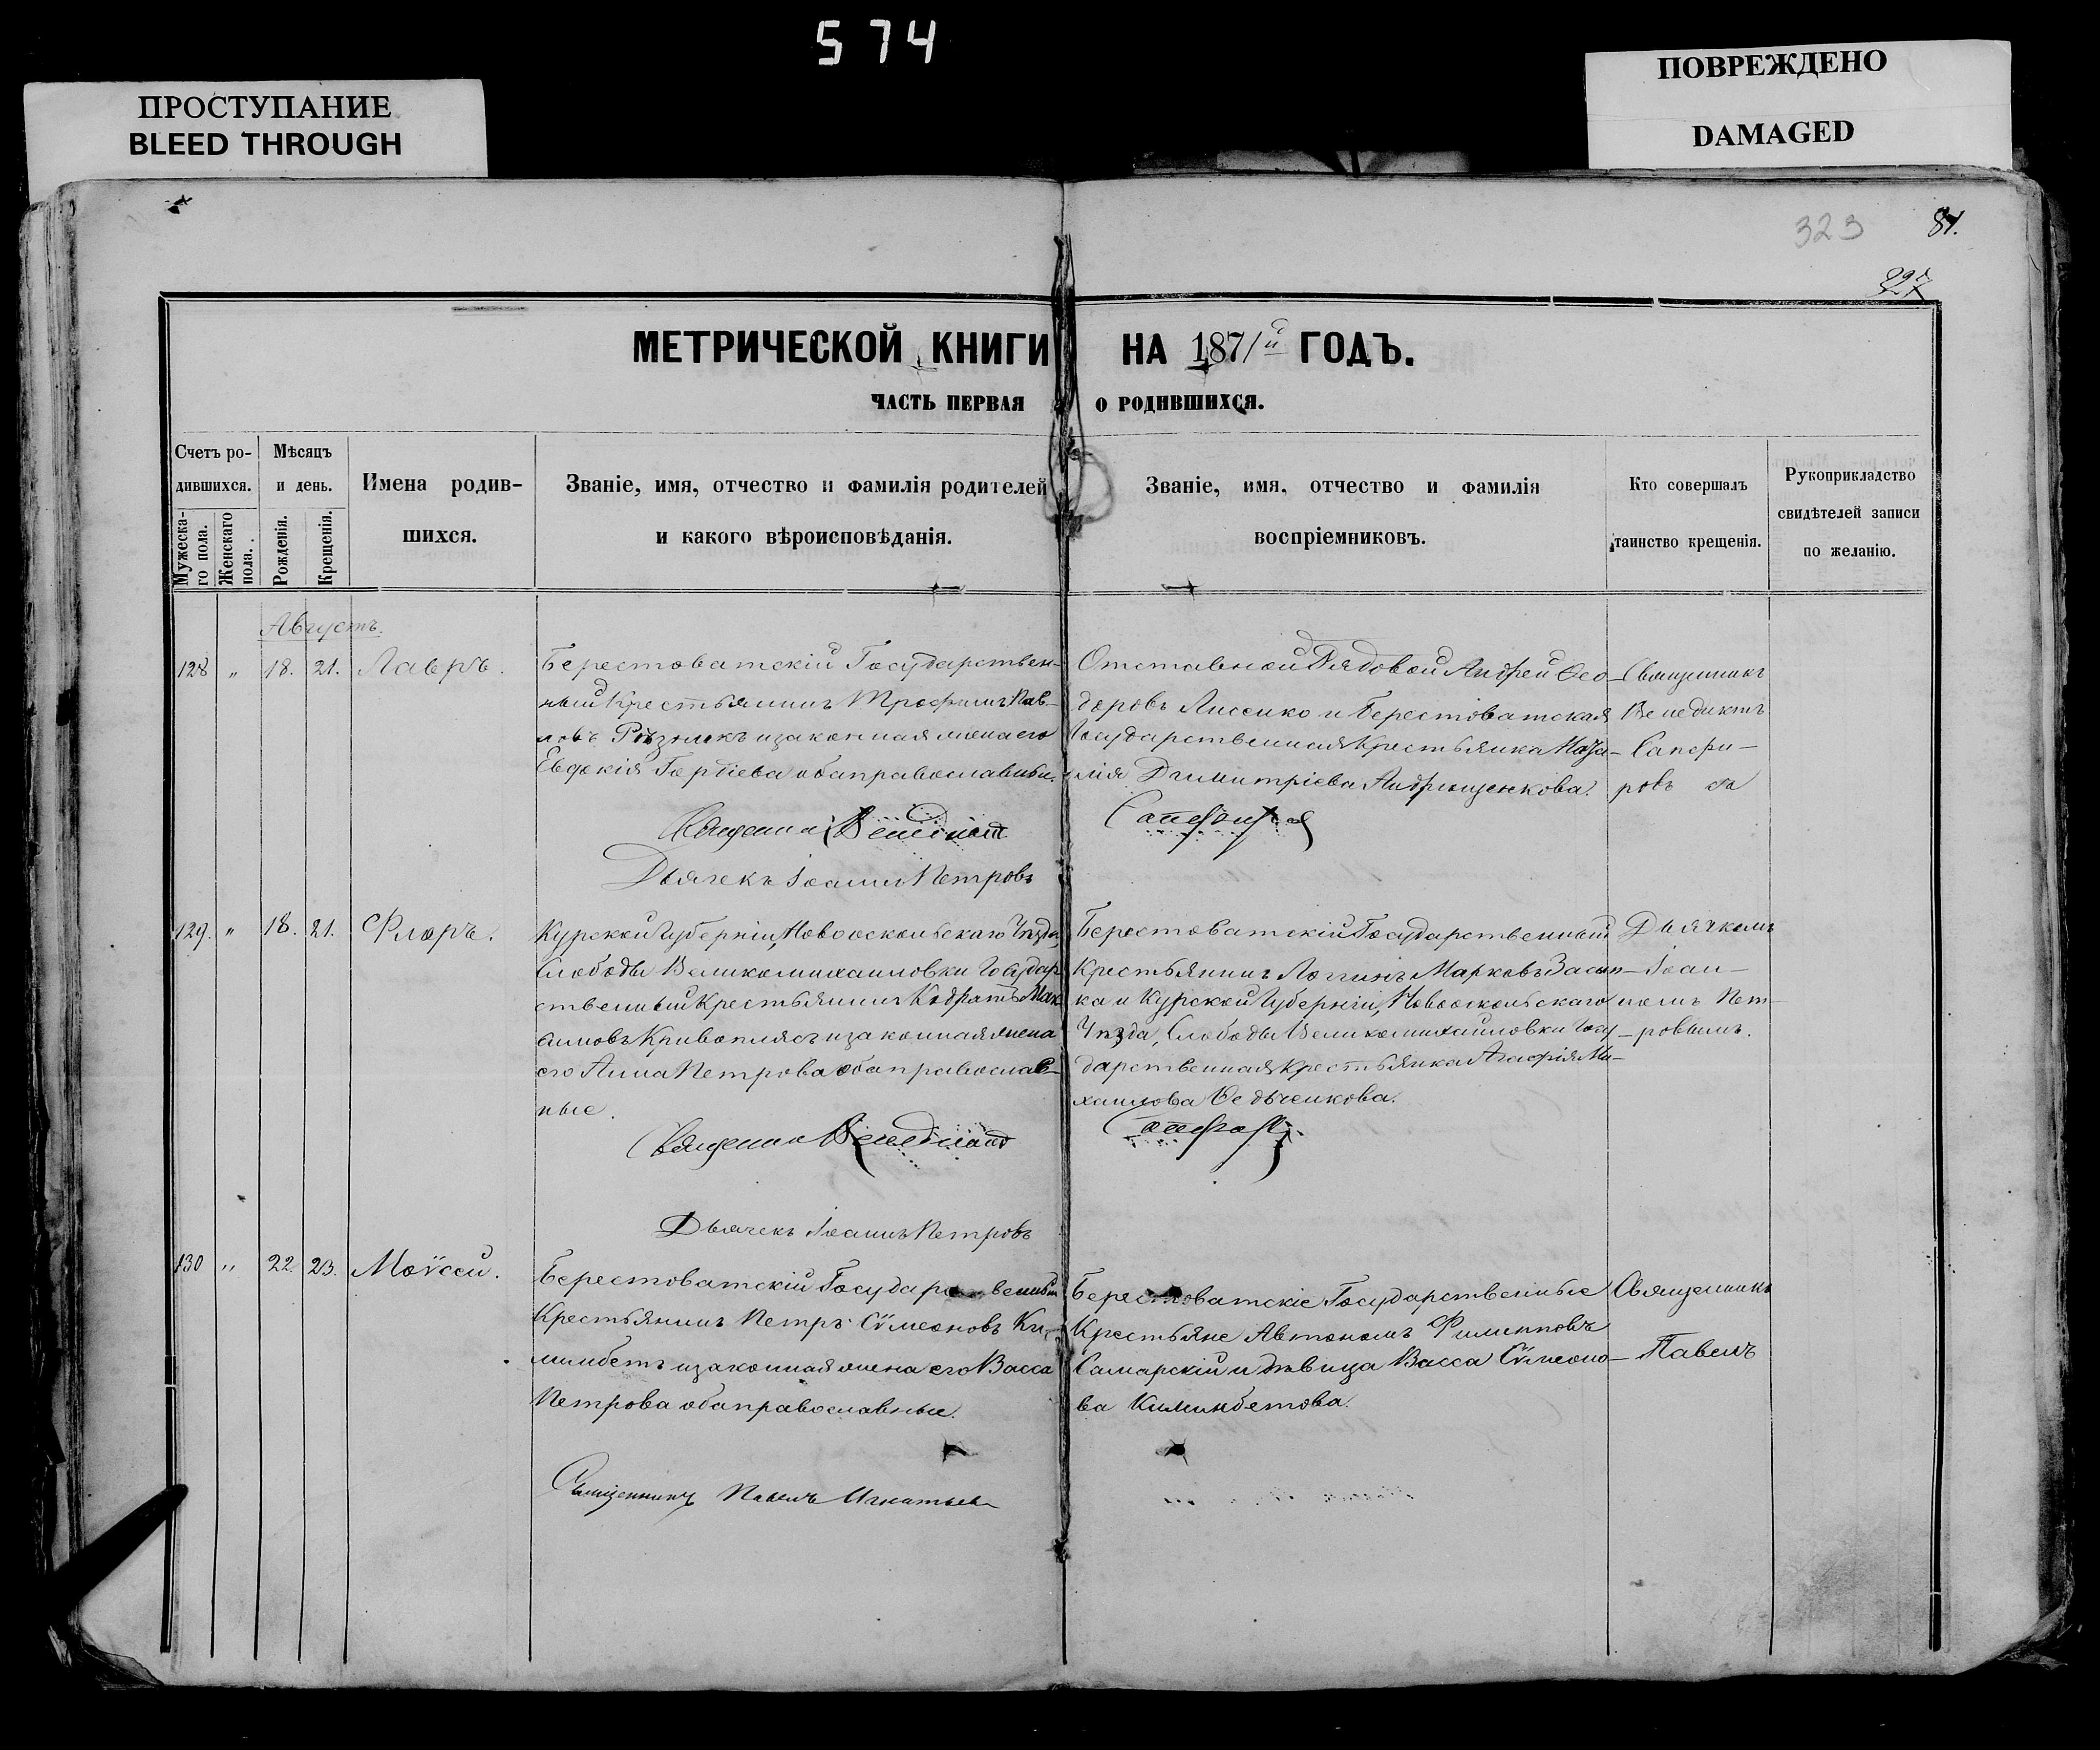 574
ПРОСТУПАНИЕ
BLEED THROUGH
ПОВРЕЖДЕНО
DAMAGED
323
81.
МЕТРИЧЕСКОЙ КНИГИ НА 1871й ГОДЪ.
ЧАСТЬ ПЕРВАЯ О РОДИВШИХСЯ.
Счетъ ро-
дившихся.
Мужеска-
го пола.
Женскаго
пола.
Мѣсяцъ
и день.
Рожденія.
Крещенія.
Имена родив-
шихся.
Званіе, имя, отчество и фамилія родителей
и какого вѣроисповѣданія.
Званіе, имя, отчество и фамилія
воспріемниковъ.
Кто совершалъ
таинство крещенія.
Рукоприкладство
свидѣтелей записи
по желанію.
Августъ.
128 " 18. 21. Лавръ.
Берестоватскій Государствен-
ный Крестьянинъ Трофимъ Пав-
ловъ и законная жена его
Евдокія Гордіева оба православные.
Отставной Рядовой Андрей Ѳео-
доровъ Лисенко и Берестоватская
Государственная Крестьянка
Димитріева Андрющенкова.
Священникъ
Венедиктъ
Сапфи-
ровъ
Священникъ Венедиктъ Сапфировъ
Дьячекъ Іоаннъ Петровъ
129. " 18. 21. Флоръ.
Курской Губерніи, Новооскольскаго Уѣзда,
Слободы Великомихайловки Государ-
ственный Крестьянинъ Кодратъ Мак-
симовъ Кривоплясъ и законная жена
его Анна Петрова оба православ-
ные.
Берестоватскій Государственный
Крестьянинъ Логгинъ Марковъ
и Курской Губерніи, Новооскольскаго
Уѣзда, Слободы Великомихайловки Госу-
дарственная Крестьянка Агафія Ми-
хаилова Ѳедьченкова.
Дьячкомъ
Іоан-
номъ Пет-
ровымъ.
Священникъ Венедиктъ Сапфировъ
Дьячекъ Іоаннъ Петровъ
130 " 22. 23. Моѵсей.
Берестоватскій Государственный
Крестьянинъ Петръ Сѵмеоновъ Ки-
лимбетъ и законная жена его Васса
Петрова оба православные.
Берестоватскіе Государственные
Крестьяне Автономъ Филипповъ
Самарскій и дѣвица Васса Сѵмеоно-
ва Килимбетова.
Священникъ
Павелъ
Священникъ Павелъ Игнатьев